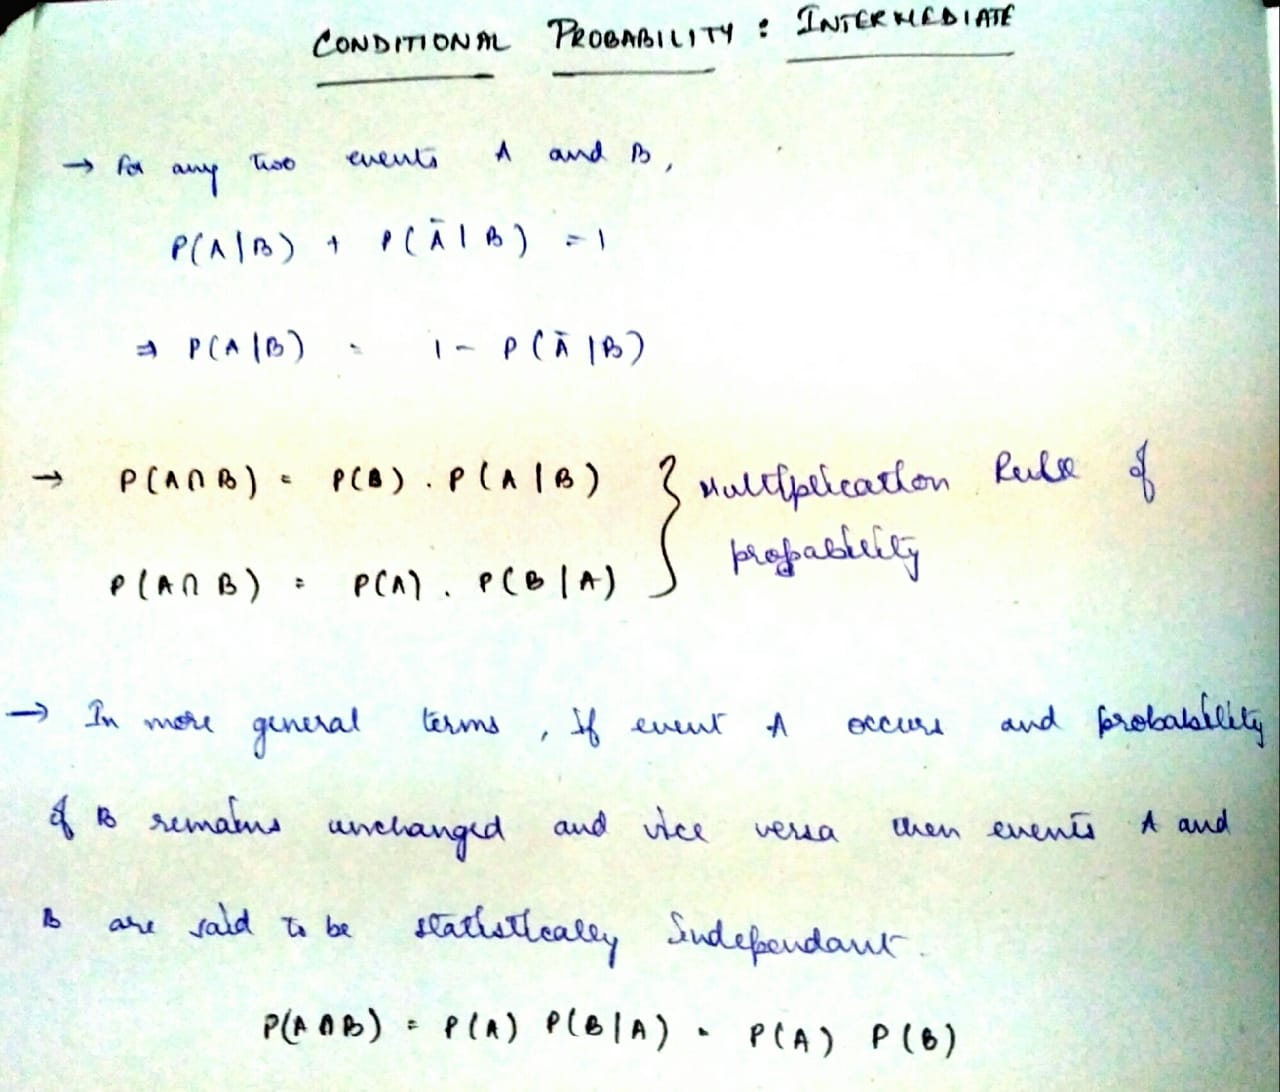 CONDITIONAL PROBABILITY : INTERMEDIATE
→ for any two events A and B,
P(A|B) + P(Ā|B) = 1
⇒ P(A|B) = 1 - P(Ā|B)
→ P(A∩B) = P(B) . P(A|B) } Multiplication Rule of
probability
P(A∩B) = P(A) . P(B|A)
→ In more general terms, if event A occurs and probability
of B remains unchanged and vice versa then events A and
B are said to be statistically independant.
P(A∩B) = P(A) P(B|A) = P(A) P(B)